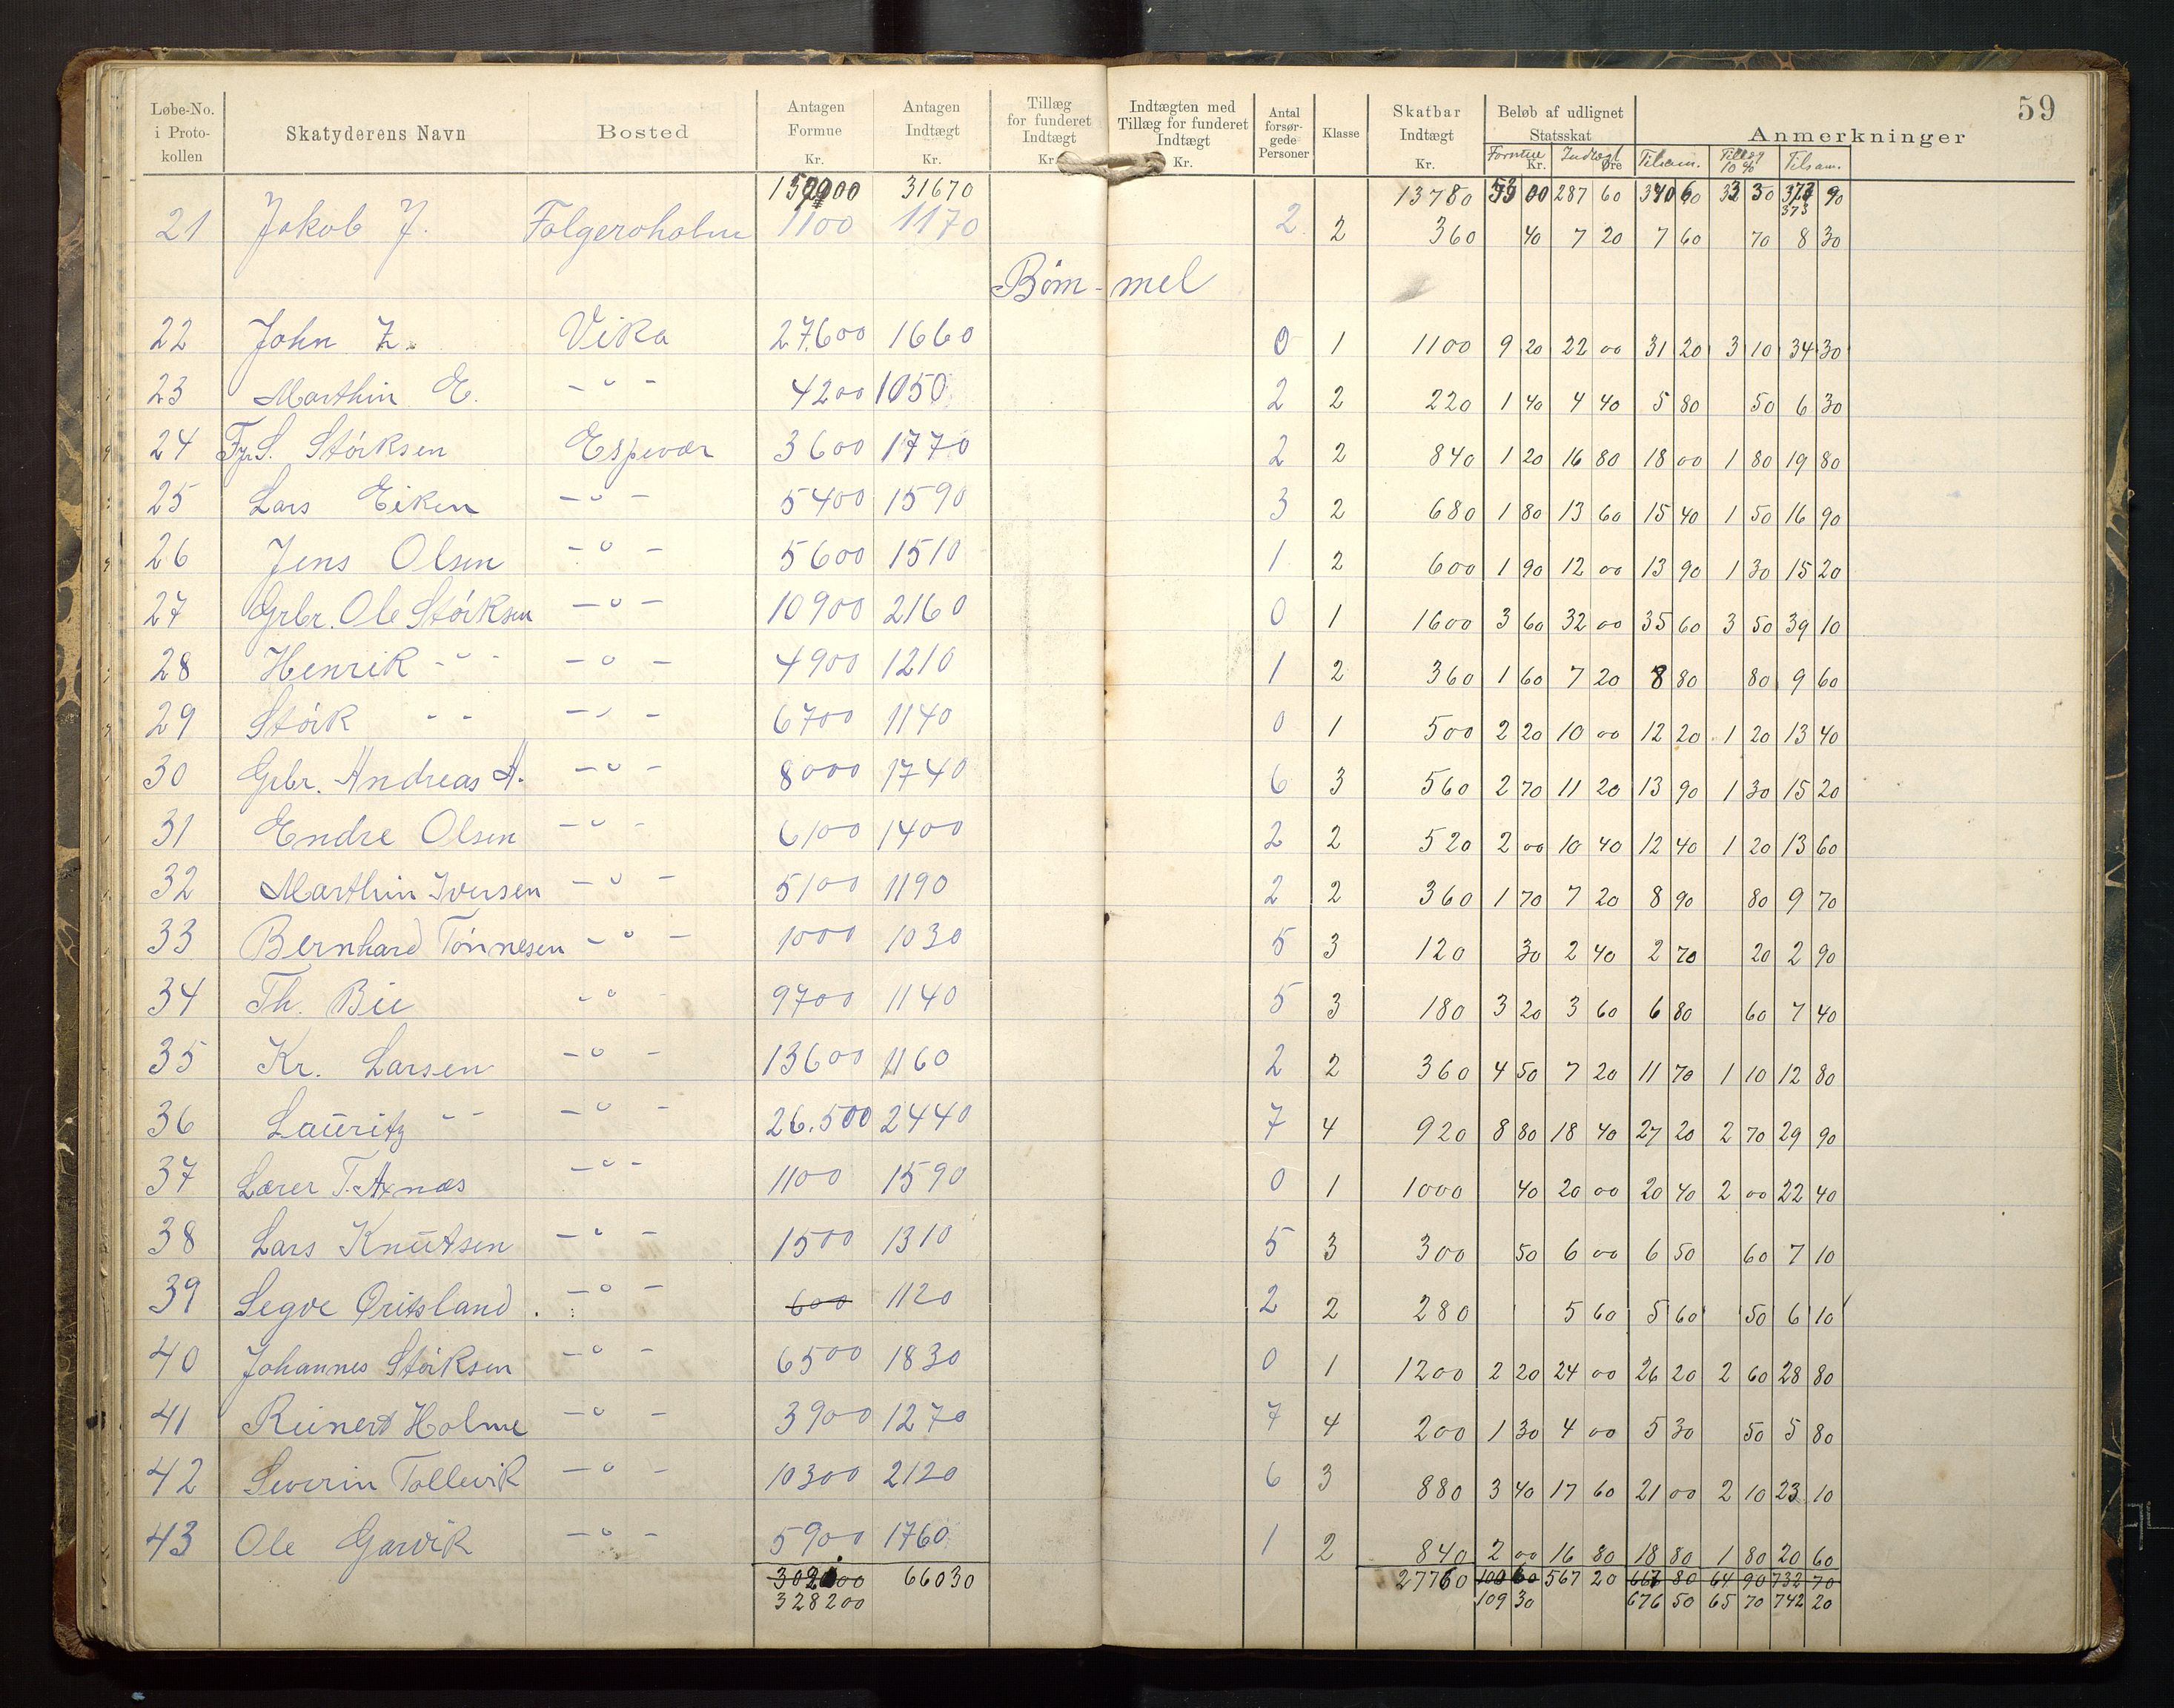 59
Løbe-No. i Proto-kollen | Skatyderens Navn | Bosted | Antagen Formue Kr. | Antagen Indtægt Kr. | Tillæg for funderet Indtægt Kr. | Indtægten med Tillæg for funderet Indtægt Kr. | Antal forsør-gede Personer | Klasse | Skatbar Indtægt Kr. | Beløb af udlignet Statsskat Kr. Øre | Anmerkninger
Formue | Indtægt | Tilsam. | Tillæg 10% | Tilsam.
31670 | 13780 | 287 60 | 340 60 | 33 30 | 90
373
21 | Jakob J. | Folgeroholm | 1100 | 1170 | 2 | 2 | 360 | 40 | 7 20 | 7 60 | 70 | 8 30
Bøm-mel
22 | John Z. | Vika | 27600 | 1660 | 0 | 1 | 1100 | 9 20 | 22 00 | 31 20 | 3 10 | 34 30
23 | Marthin E. | - " - | 4200 | 1050 | 2 | 2 | 220 | 1 40 | 4 40 | 5 80 | 50 | 6 30
24 | Fyr. S. Störksen | Espevær | 3600 | 1770 | 2 | 2 | 840 | 1 20 | 16 80 | 18 00 | 1 80 | 19 80
25 | Lars Eiken | - " - | 5400 | 1590 | 3 | 2 | 680 | 1 80 | 13 60 | 15 40 | 1 50 | 16 90
26 | Jens Olsen | - " - | 5600 | 1510 | 1 | 2 | 600 | 1 90 | 12 00 | 13 90 | 1 30 | 15 20
27 | Grbr. Ole Störksen | - " - | 10900 | 2160 | 0 | 1 | 1600 | 3 60 | 32 00 | 35 60 | 3 50 | 39 10
28 | Henrik - " - | - " - | 4900 | 1210 | 1 | 2 | 360 | 1 60 | 7 20 | 8 80 | 80 | 9 60
29 | Störk - - | - " - | 6700 | 1140 | 0 | 1 | 500 | 2 20 | 10 00 | 12 20 | 1 20 | 13 40
30 | Grbr. Andreas A. | - " - | 8000 | 1740 | 6 | 3 | 560 | 2 70 | 11 20 | 13 90 | 1 30 | 15 20
31 | Endre Olsen | - " - | 6100 | 1400 | 2 | 2 | 520 | 2 00 | 10 40 | 12 40 | 1 20 | 13 60
32 | Marthin Iversen | - " - | 5100 | 1190 | 2 | 2 | 360 | 1 70 | 7 20 | 8 90 | 80 | 9 70
33 | Bernhard Tönnesen | - " - | 1000 | 1030 | 5 | 3 | 120 | 30 | 2 40 | 2 70 | 20 | 2 90
34 | Th. Bie | - " - | 9700 | 1140 | 5 | 3 | 180 | 3 20 | 3 60 | 6 80 | 60 | 7 40
35 | Kr. Larsen | - " - | 13600 | 1160 | 2 | 2 | 360 | 4 50 | 7 20 | 11 70 | 1 10 | 12 80
36 | Lauritz - - | - " - | 26.500 | 2440 | 7 | 4 | 920 | 8 80 | 18 40 | 27 20 | 2 70 | 29 90
37 | Lærer T. Axnæs | - " - | 1100 | 1590 | 0 | 1 | 1000 | 40 | 20 00 | 20 40 | 2 00 | 22 40
38 | Lars Knutsen | - " - | 1500 | 1310 | 5 | 3 | 300 | 50 | 6 00 | 6 50 | 60 | 7 10
39 | Segve Øritsland . | - " - | 600 | 1120 | 2 | 2 | 280 | 5 60 | 5 60 | 50 | 6 10
40 | Johannes Störksen | - " - | 6500 | 1830 | 0 | 1 | 1200 | 2 20 | 24 00 | 26 20 | 2 60 | 28 80
41 | Reinert Holme | - " - | 3900 | 1270 | 7 | 4 | 200 | 1 30 | 4 00 | 5 30 | 50 | 5 80
42 | Severin Tollevik | - " - | 10300 | 2120 | 6 | 3 | 880 | 3 40 | 17 60 | 21 00 | 2 10 | 23 10
43 | Ole Garvik | - " - | 5900 | 1760 | 1 | 2 | 840 | 2 00 | 16 80 | 18 80 | 1 80 | 20 60
66030 | 27760 | 100 60 | 567 20 | 667 80 | 64 90 | 732 70
328200 | 109 30 | 676 50 | 65 70 | 742 20